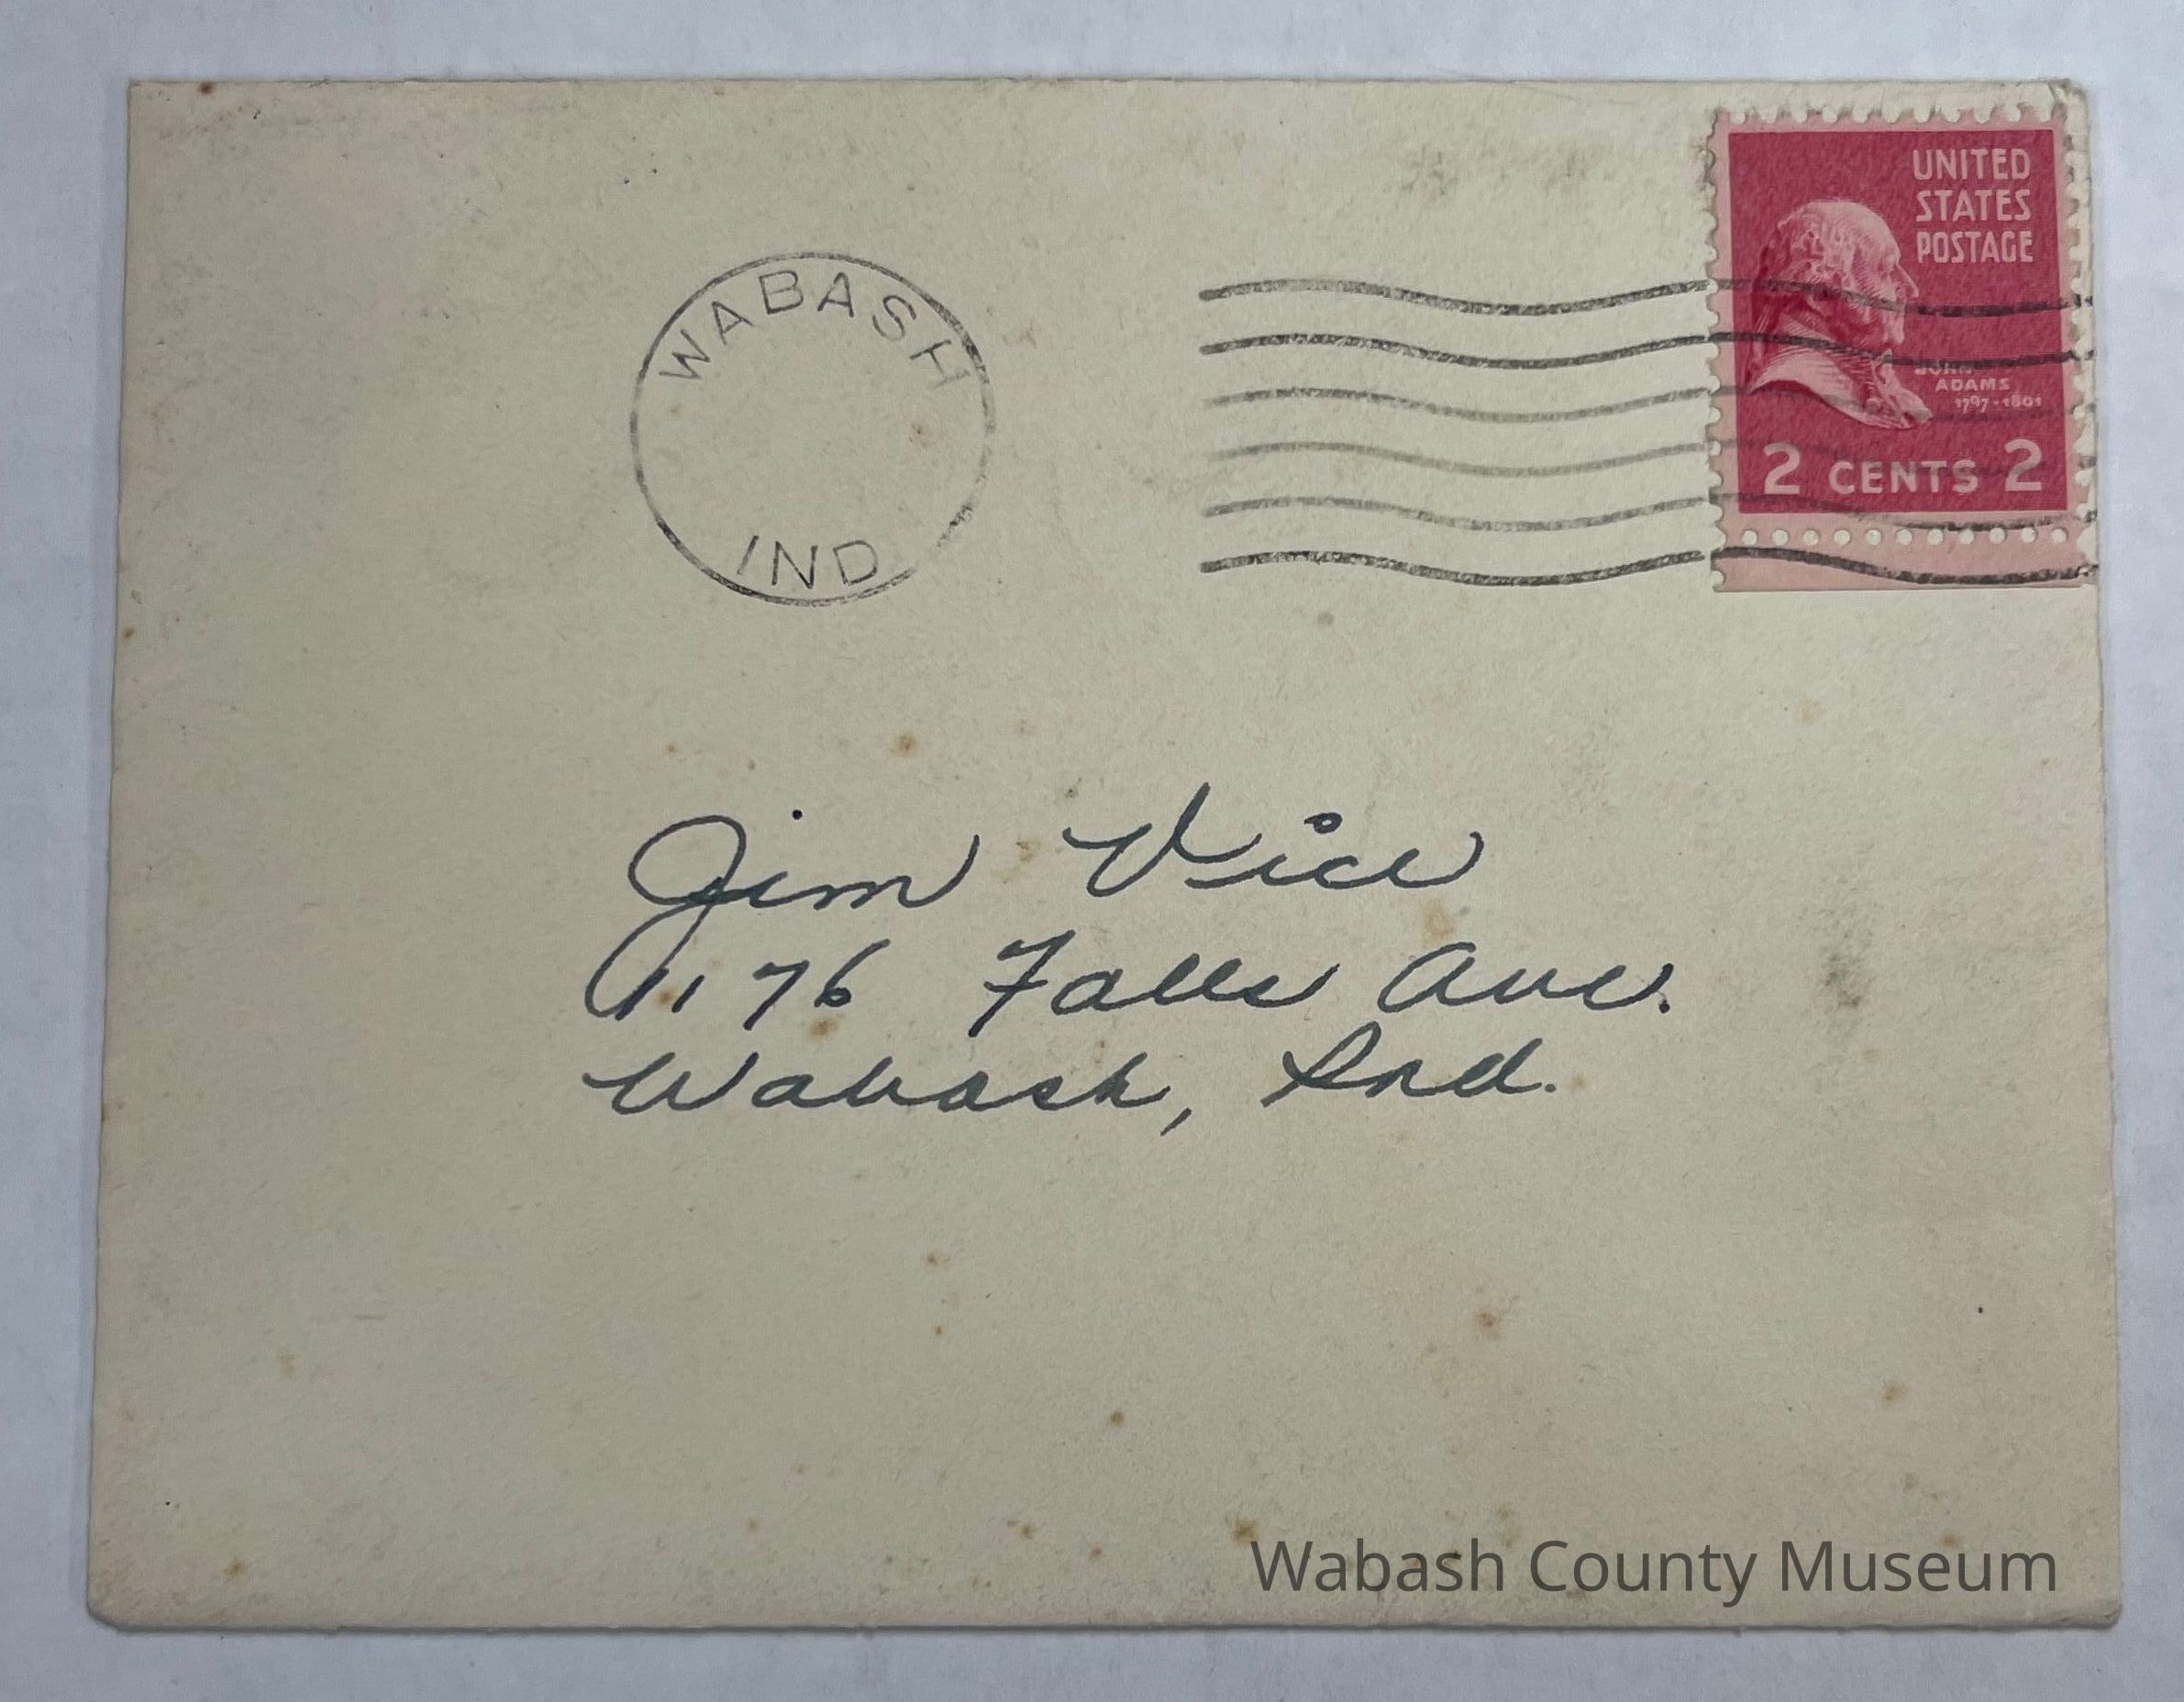 WABASH
IND
UNITED
STATES
POSTAGE
JOHN
ADAMS
1797-1801
2 CENTS 2
Jim Vice
1176 Falls Ave.
Wabash, Ind.
Wabash County Museum